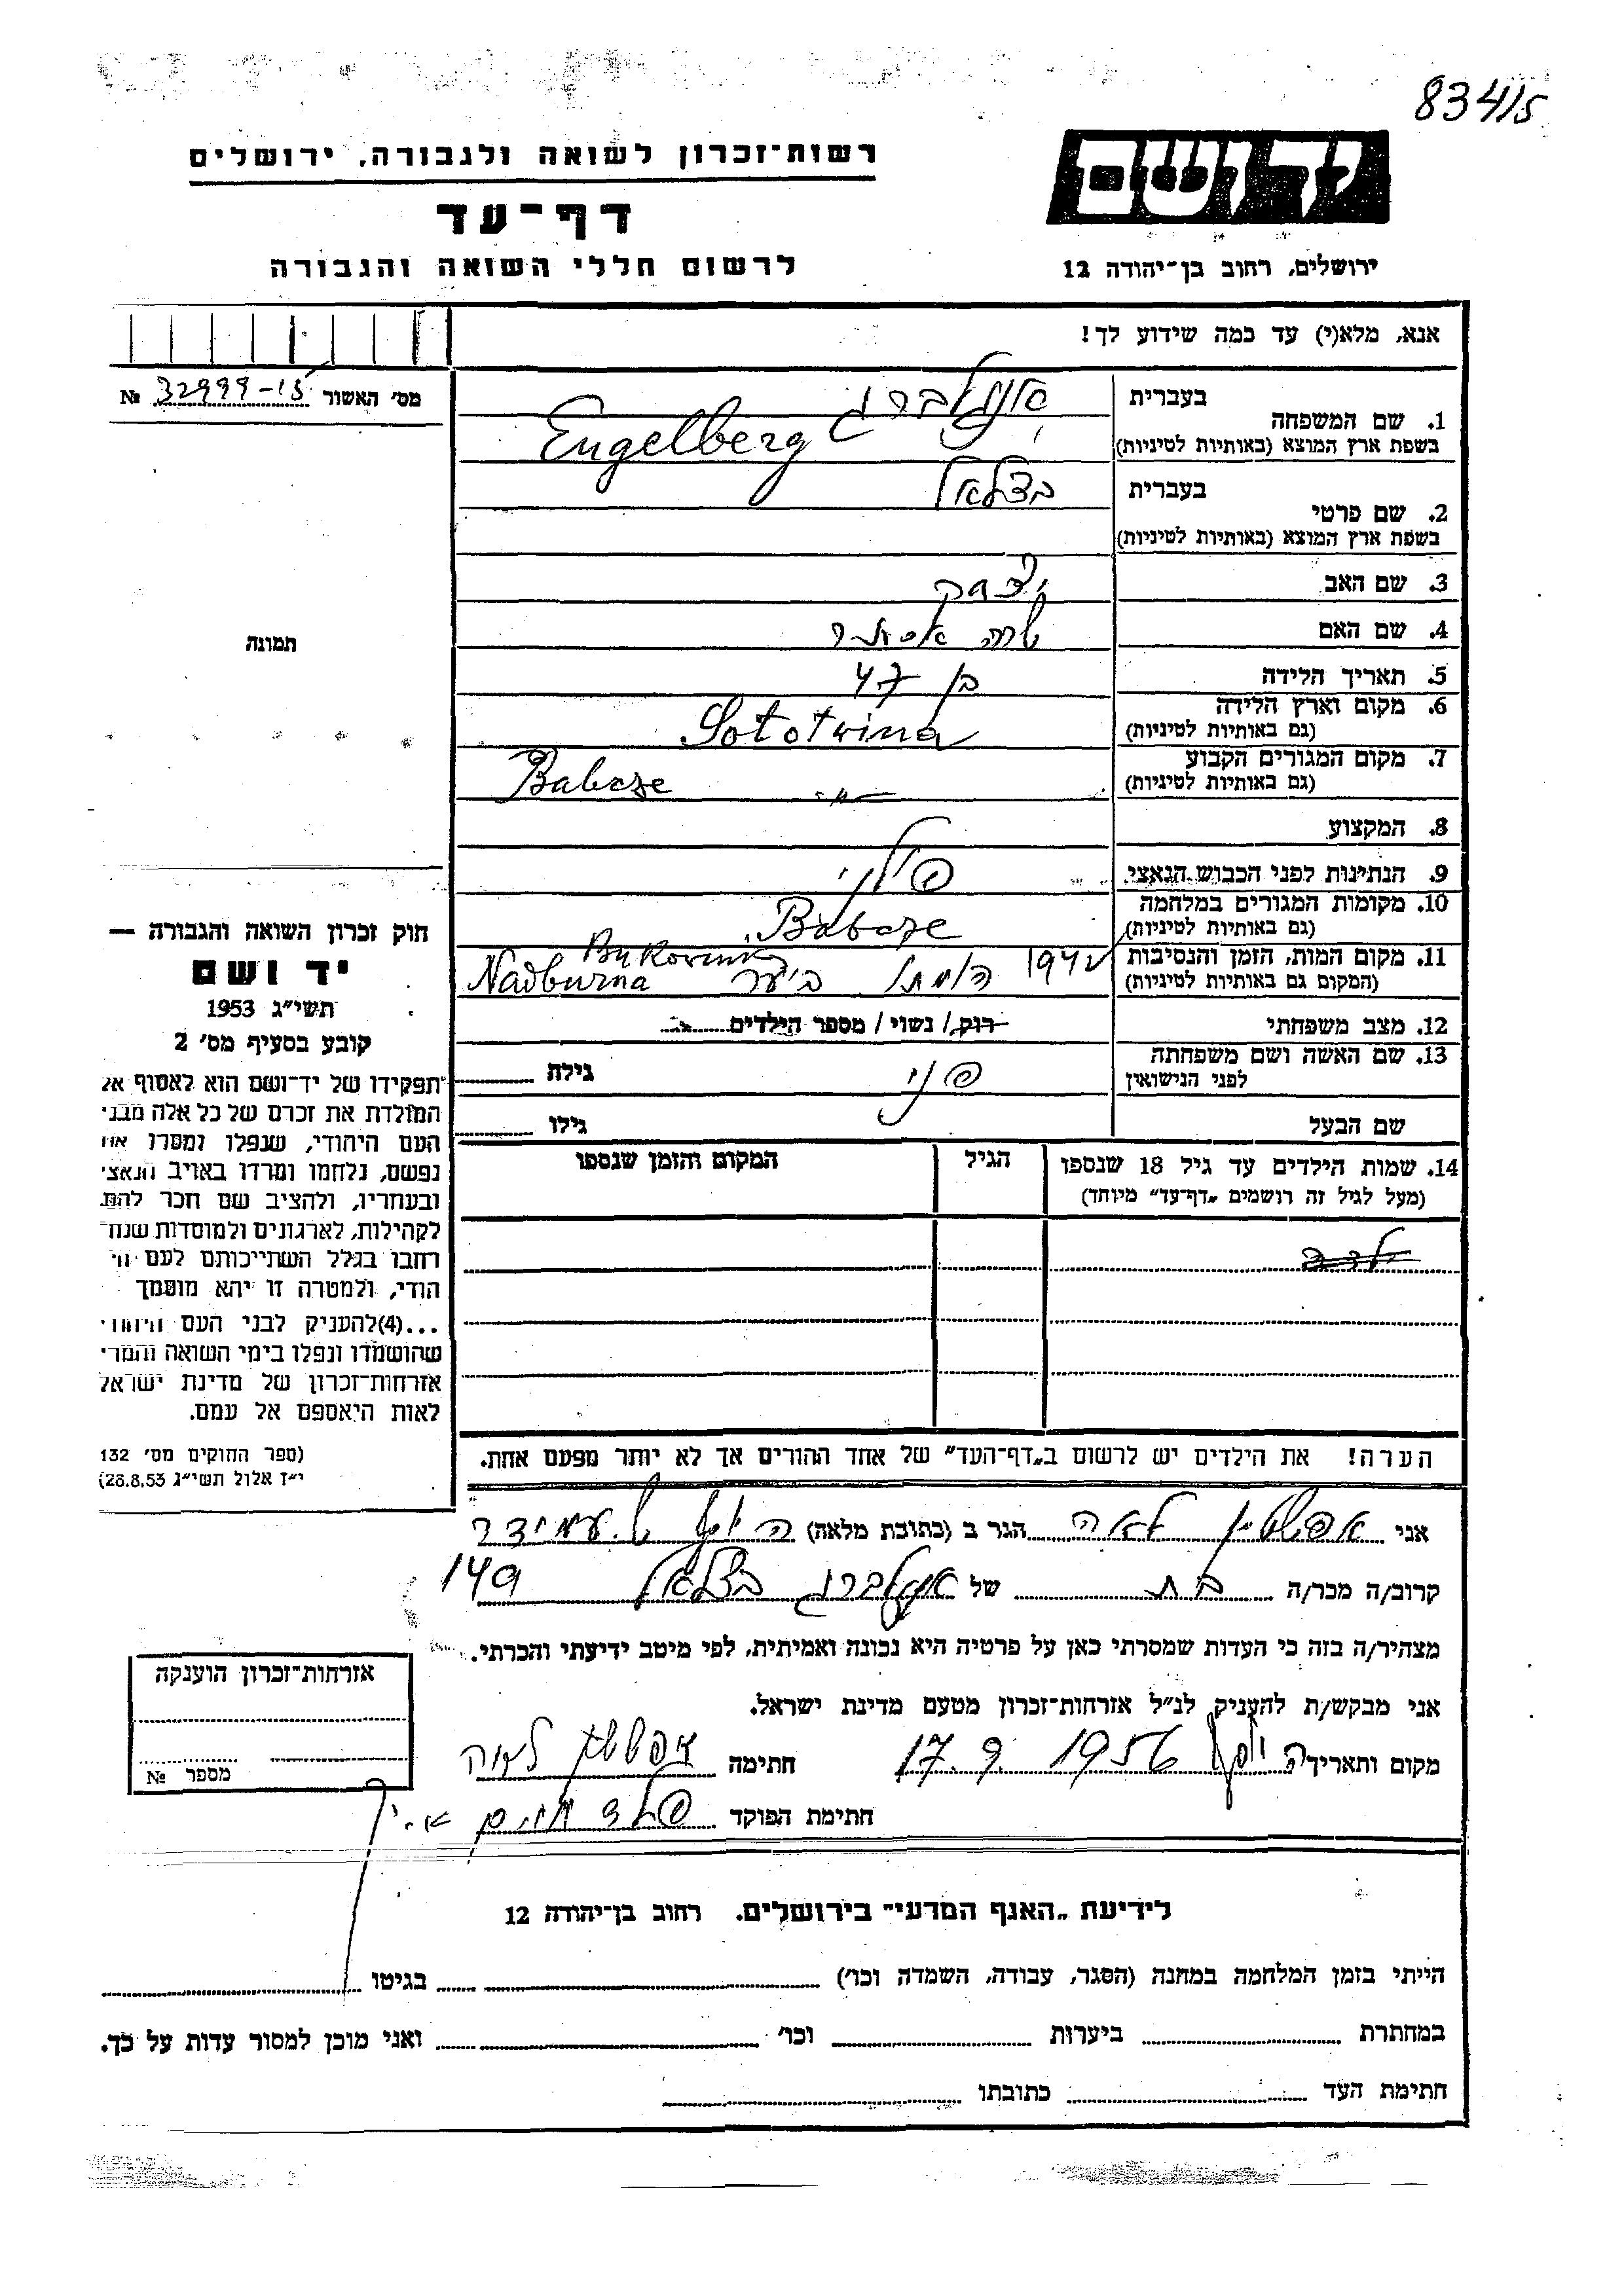 834/5
רשות-זכרון לשואה ולגבורה, ירושלים
יד ושם
דף-עד
לרשום חללי השואה והגבורה
ירושלים, רחוב בן-יהודה 12
אנא, מלא(י) עד כמה שידוע לך!
מס׳ האשור № 32999-15
בעברית אנגלברג
1. שם המשפחה
בשפת ארץ המוצא (באותיות לטיניות) Engelberg
בעברית בצלאל
2. שם פרטי
בשפת ארץ המוצא (באותיות לטיניות)
3. שם האב יצחק
4. שם האם שרה אסתר
תמונה
5. תאריך הלידה בן 47
6. מקום וארץ הלידה Sototwina
(גם באותיות לטיניות)
7. מקום המגורים הקבוע
(גם באותיות לטיניות) -"- Babcze
8. המקצוע
9. הנתינות לפני הכבוש הנאצי פולני
10. מקומות המגורים במלחמה
(גם באותיות לטיניות) Babcze
11. מקום המות, הזמן והנסיבות 1942 הומתו ביער Bukowink
(המקום גם באותיות לטיניות) Nadburna
12. מצב משפחתי רוק / נשוי / מספר הילדים
13. שם האשה ושם משפחתה פני גילה
לפני הנישואין
שם הבעל גילו
14. שמות הילדים עד גיל 18 שנספו הגיל המקום והזמן שנספו
(מעל לגיל זה רושמים „דף-עד״ מיוחד)
הערה! את הילדים יש לרשום ב„דף-העד״ של אחד ההורים אך לא יותר מפעם אחת.
חוק זכרון השואה והגבורה —
יד ושם
תשי״ג 1953
קובע בסעיף מס׳ 2
תפקידו של יד-ושם הוא לאסוף אל
המולדת את זכרם של כל אלה מבני
העם היהודי, שנפלו ומסרו את
נפשם, נלחמו ומרדו באויב הנאצי
ובעוזריו, ולהציב שם וזכר להם,
לקהילות, לארגונים ולמוסדות שנח־
רבו בגלל השתייכותם לעם הי־
הודי, ולמטרה זו יהא מוסמך
...(4)להעניק לבני העם היהודי
שהושמדו ונפלו בימי השואה והמרי
אזרחות-זכרון של מדינת ישראל
לאות היאספם אל עמם.
(ספר החוקים מס׳ 132
י״ז אלול תשי״ג 28.8.53)
אני אפשטין לאה הגר ב (כתובת מלאה) חיפה ש. עמידר
קרוב/ה מכר/ה בת של אנגלברג בצלאל 149
מצהיר/ה בזה כי העדות שמסרתי כאן על פרטיה היא נכונה ואמיתית, לפי מיטב ידיעתי והכרתי.
אני מבקש/ת להעניק לנ״ל אזרחות-זכרון מטעם מדינת ישראל.
מקום ותאריך חיפה 17.9.1956 חתימה אפשטין לאה
חתימת הפוקד
אזרחות-זכרון הוענקה
מספר №
לידיעת „האגף המדעי״ בירושלים. רחוב בן-יהודה 12
הייתי בזמן המלחמה במחנה (הסגר, עבודה, השמדה וכו׳) בגיטו
במחתרת ביערות וכו׳ ואני מוכן למסור עדות על כך.
חתימת העד כתובתו